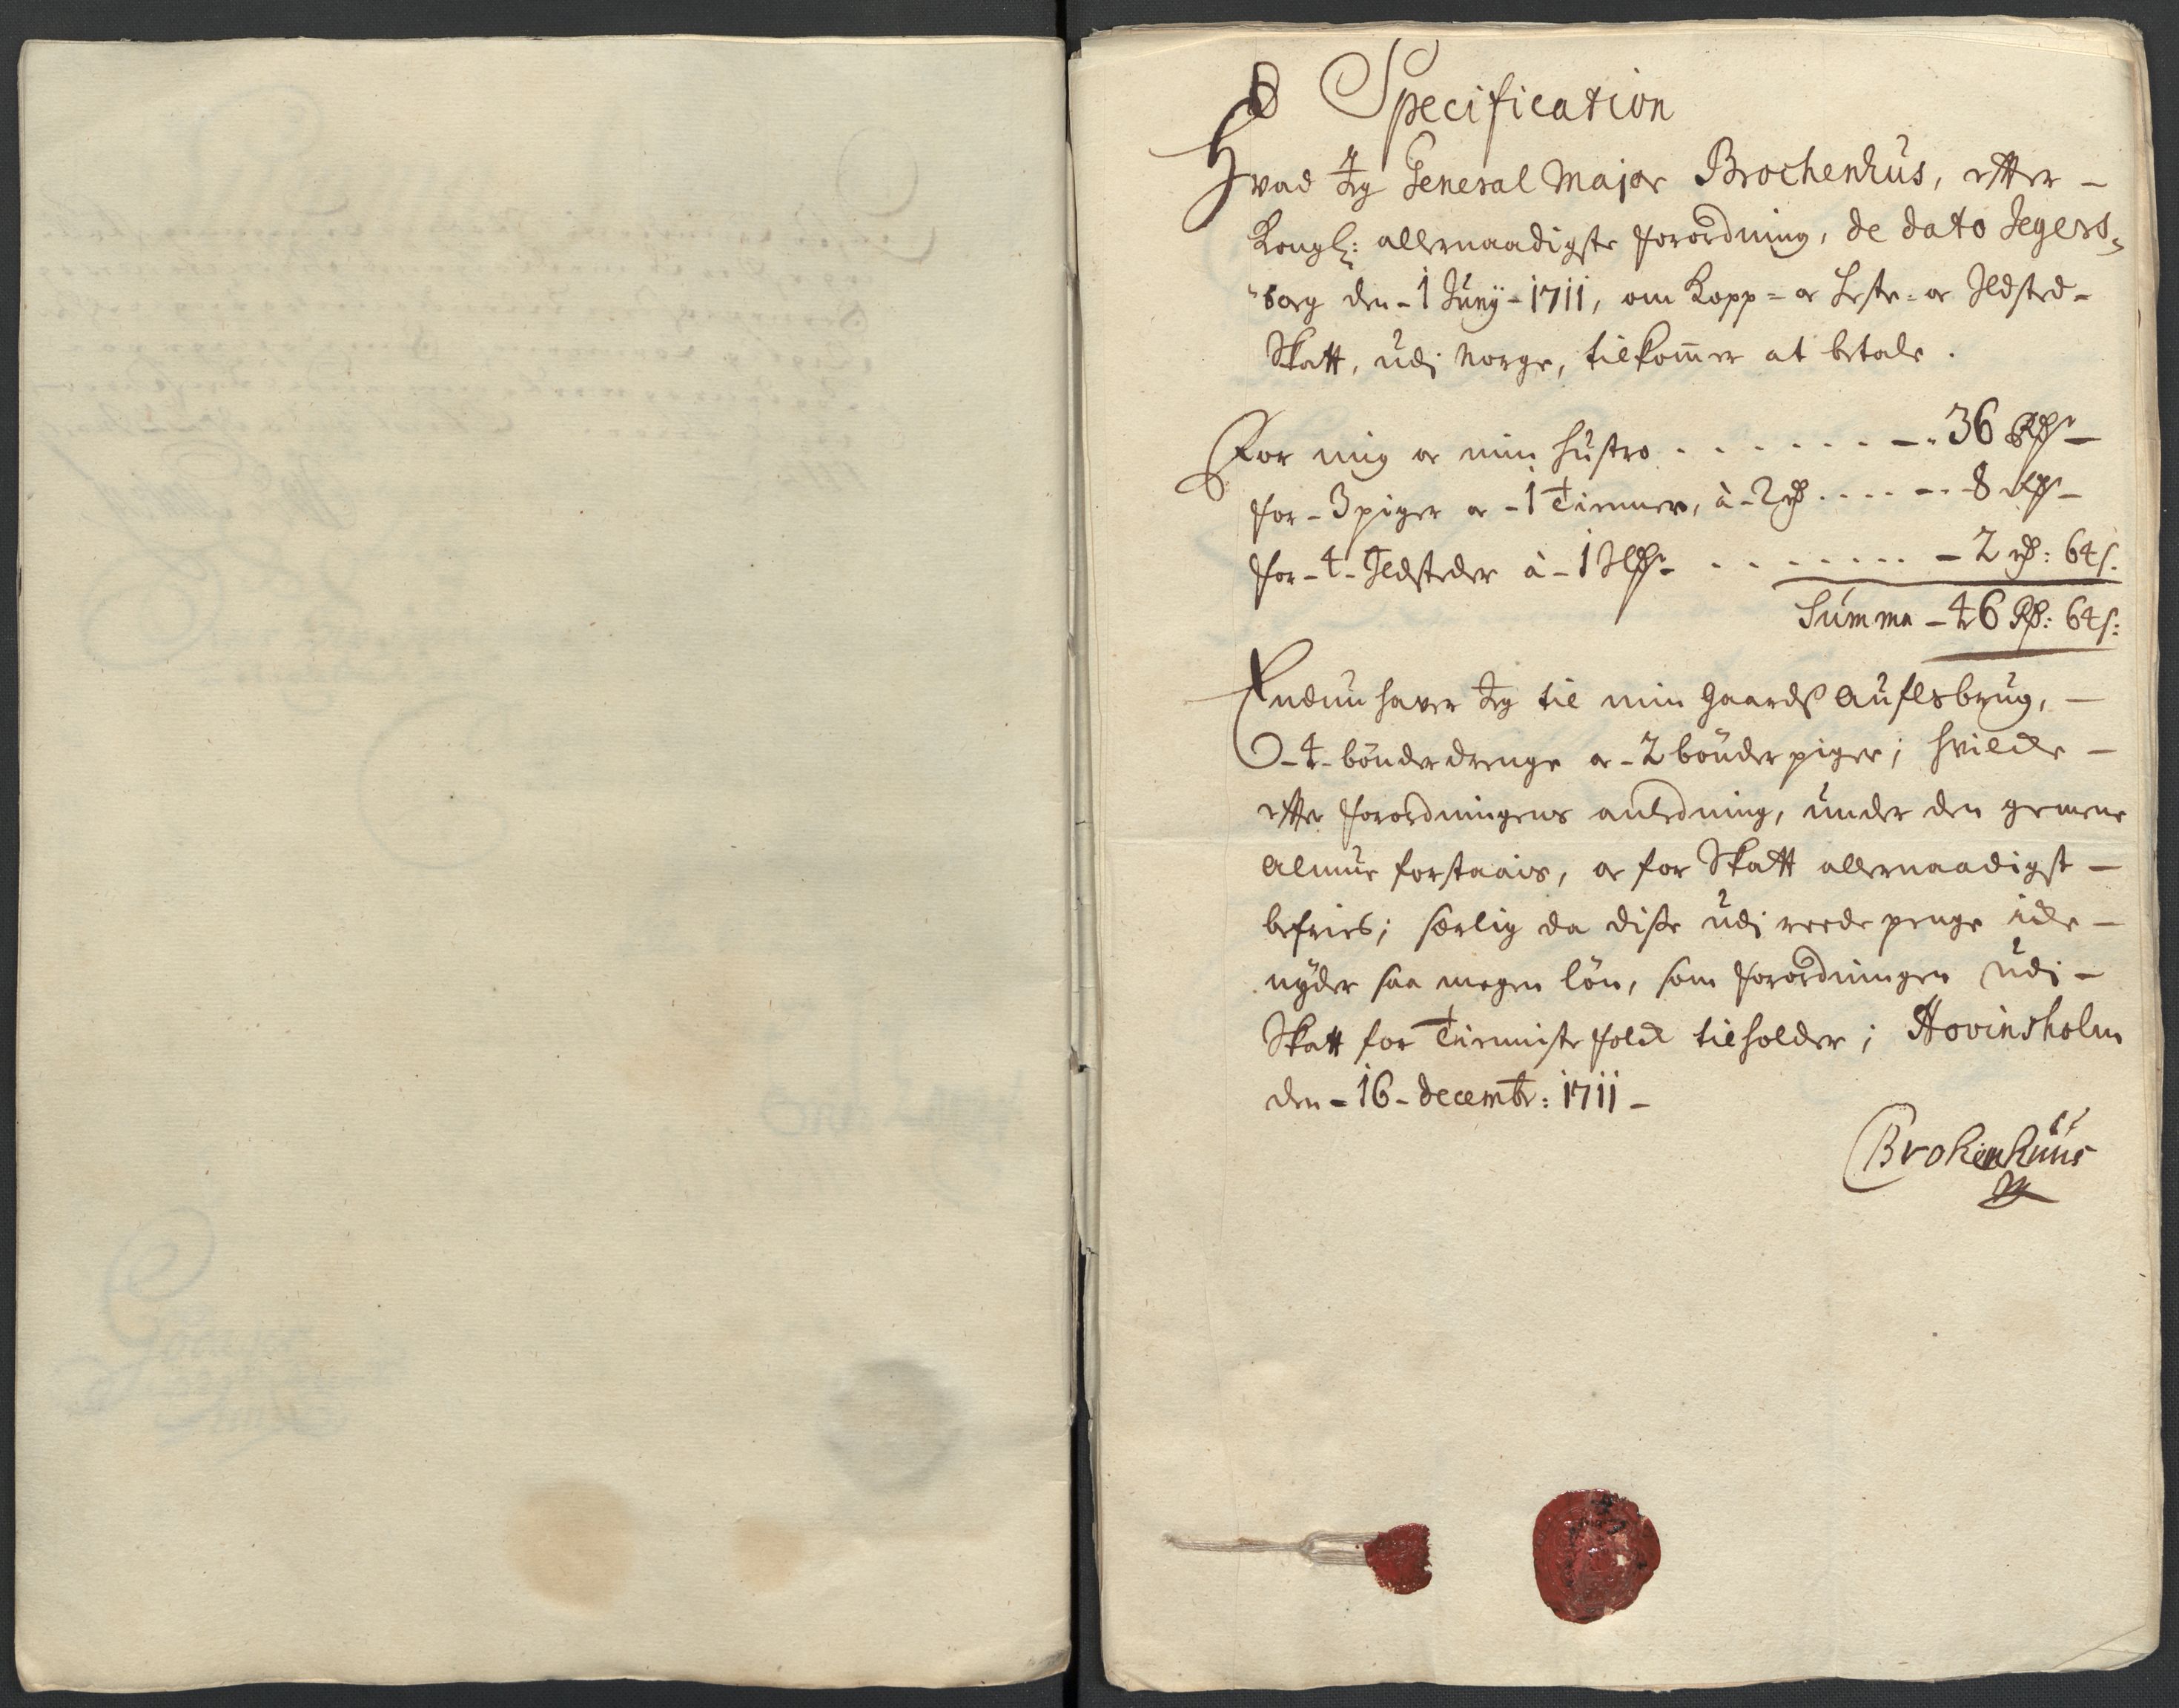 Specification
Hvad Jeg General Major Brochenhus, efter
Kongl: allernaadigste forordning, de dato Jegers-
borg den 1 Junij 1711, om Kopp= oc Heste= oc Ildsted-
Skatt, udj Norge, tilkommer at betale.
For mig oc min hustro - 36 Rdr
for 3 piger oc 1 Tienner, à 2 rd - 8 Rdr
for 4 Ildsteder à 1 Rdr - 2 rd: 64 s.
Summa 46 Rd: 64 s:
Endnu haver Jeg til min gaards auflsbrug,
4 bönderdrenge oc 2 bönderpiger; hvilcke
efter forordningens anledning, under den gemene
almue forstaais, oc for Skatt allernaadigst
befries; særlig da disse udi reede penge icke
nyder saa megen lön, som forordningen udi
Skatt for Tienniste folck tilholder; Hovinsholm
den 16 decembr: 1711
Brokenhuus